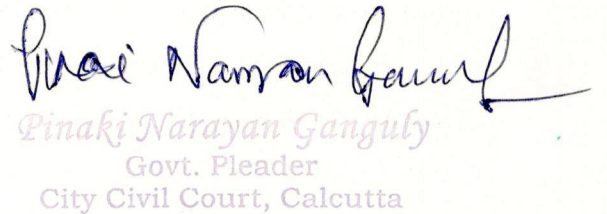 Pinaki Narayan Ganguly
Pinaki Narayan Ganguly
Govt. Pleader
City Civil Court, Calcutta